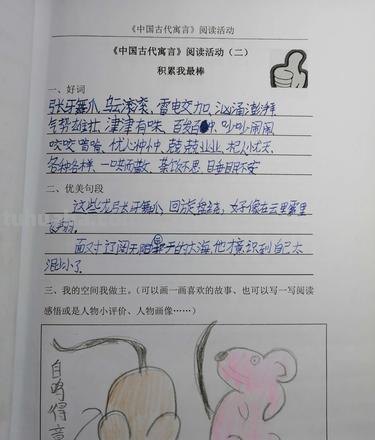 《中国古代寓言》阅读活动
《中国古代寓言》阅读活动（二）
积累我最棒
一、好词
张牙舞爪、乌云滚滚、雷电交加、汹涌澎湃
气势雄壮、津津有味、百发百中、吵吵闹闹
忧心忡忡、兢兢业业、杞人忧天、
各种各样、一哄而散、茶饭不思、
二、优美句段
这些龙张牙舞爪，回旋盘结，好像在云里雾里
飞翔。
面对辽阔无限的大海，他才意识到自己太
渺小了。
三、我的空间我做主。（可以画一画喜欢的故事、也可以写一写阅读
感悟或是人物小评价、人物画像……）
自鸣得意